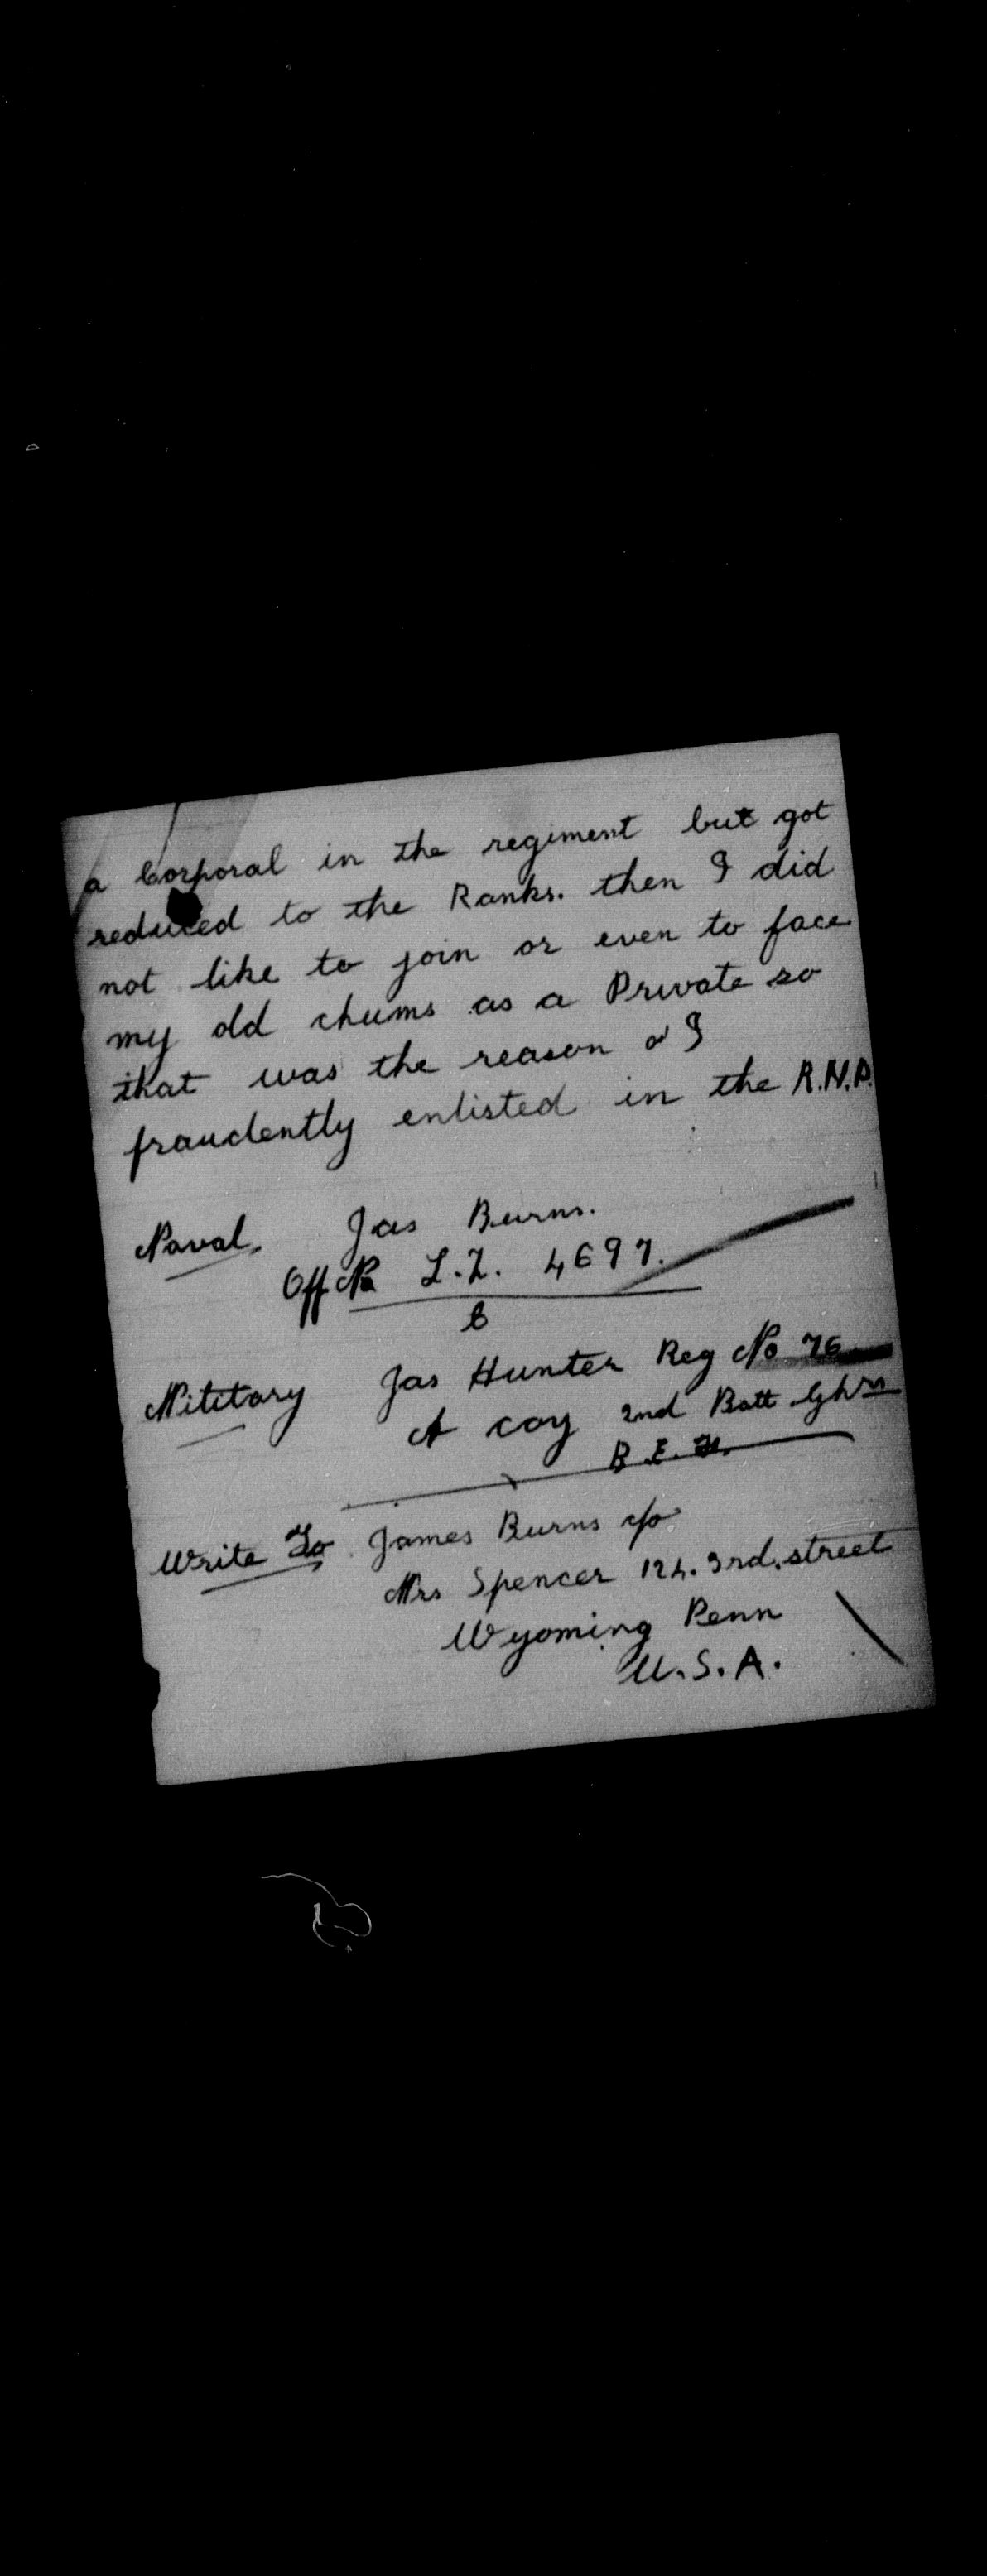 a Corporal in the regiment but got
reduced to the Ranks. then I did
not like to join or even to face
my old chums as a Private so
that was the reason I
fraudently enlisted in the R.N.D.
Naval. Jas Burns.
Off No L.Z. 4697.
Military Jas Hunter Reg No 76
A coy 2nd Batt Ghrs
B.E.F.
Write To James Burns c/o
Mrs Spencer 124. 3rd. street
Wyoming Penn
U.S.A.